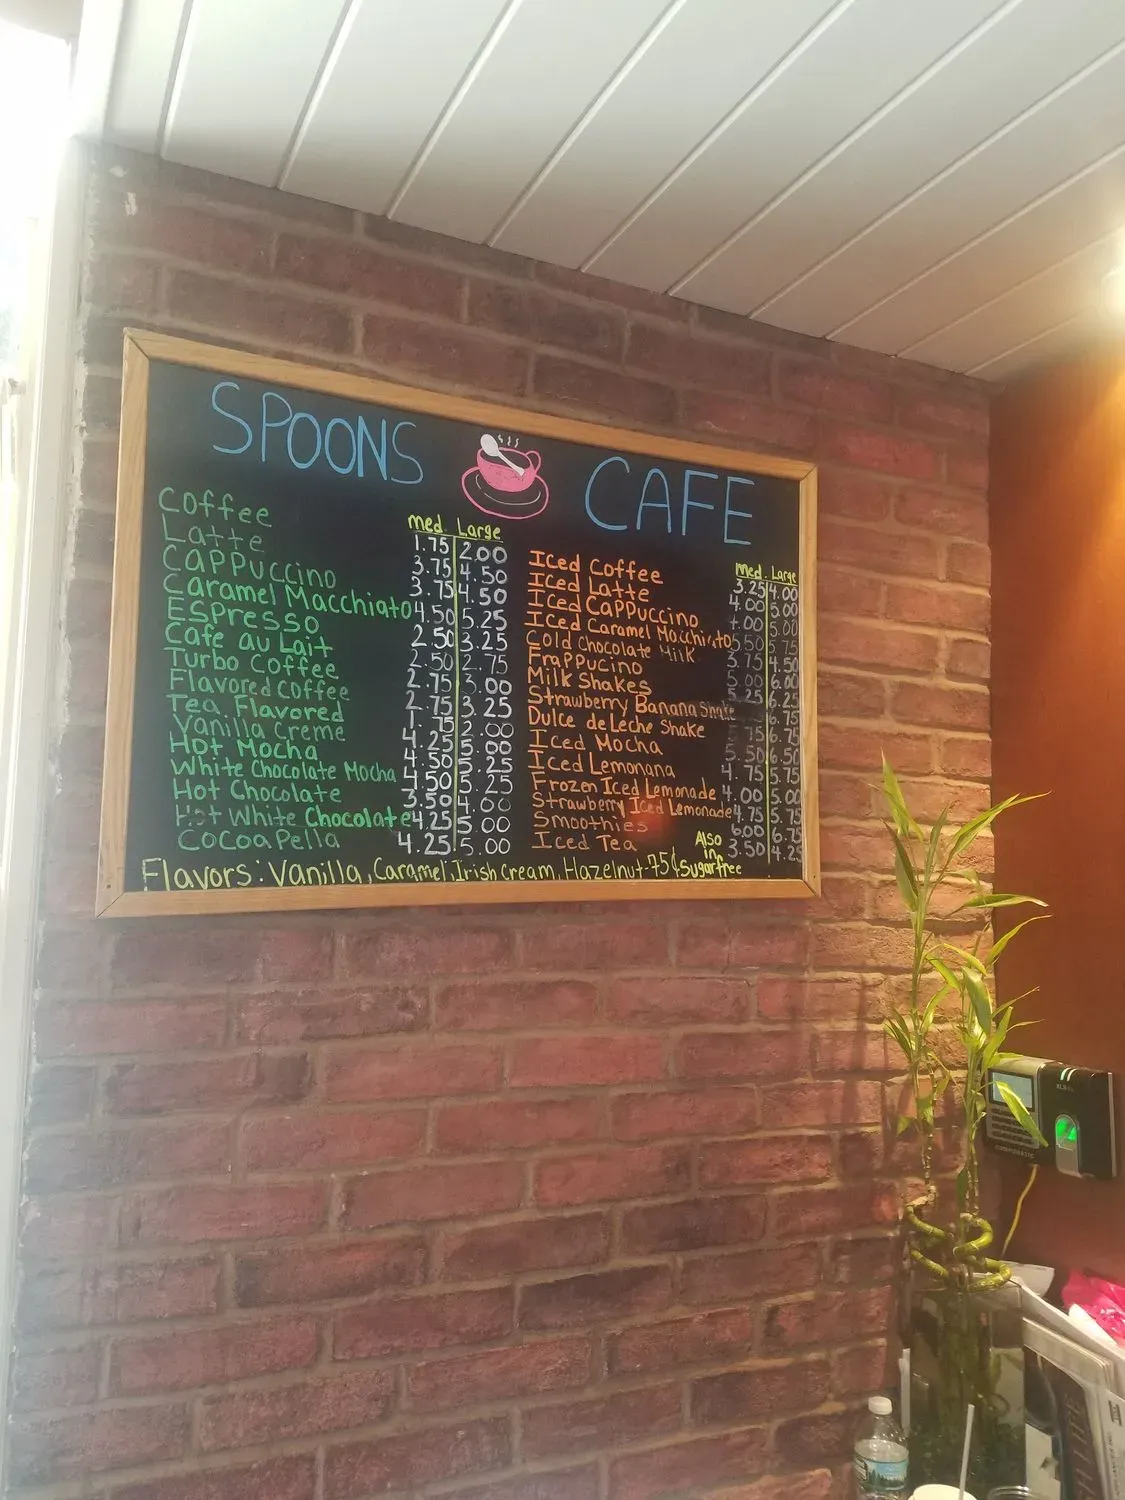 SPOONS CAFE
med. Large
Coffee 1.75 2.00
Latte 3.75 4.50
Cappuccino 3.75 4.50
Caramel Macchiato 4.50 5.25
Espresso 2.50 3.25
Cafe au Lait 2.50 2.75
Turbo Coffee 2.75 3.00
Flavored Coffee 2.75 3.25
Tea Flavored 1.75 2.00
Vanilla Creme 4.25 5.00
Hot Mocha 4.50 5.25
White Chocolate Mocha 4.50 5.25
Hot Chocolate 3.50 4.00
Hot White Chocolate 4.25 5.00
Cocoa Pella 4.25 5.00
med. Large
Iced Coffee 3.25 4.00
Iced Latte 4.00 5.00
Iced Cappuccino 5.00
Iced Caramel Macchiato 5.50 5.75
Cold Chocolate Milk 3.75 4.50
Frappucino 5.00 6.00
Milk Shakes 5.25 6.25
Strawberry Banana Shake 6.75
Dulce de Leche Shake 5.75 6.75
Iced Mocha 5.50 6.50
Iced Lemonana 4.75 5.75
Frozen Iced Lemonade 4.00 5.00
Strawberry Iced Lemonade 4.75 5.75
Smoothies 6.00 6.75
Iced Tea 3.50 4.25
Flavors: Vanilla, Caramel, Irish Cream, Hazelnut-75¢
Also
in
Sugarfree